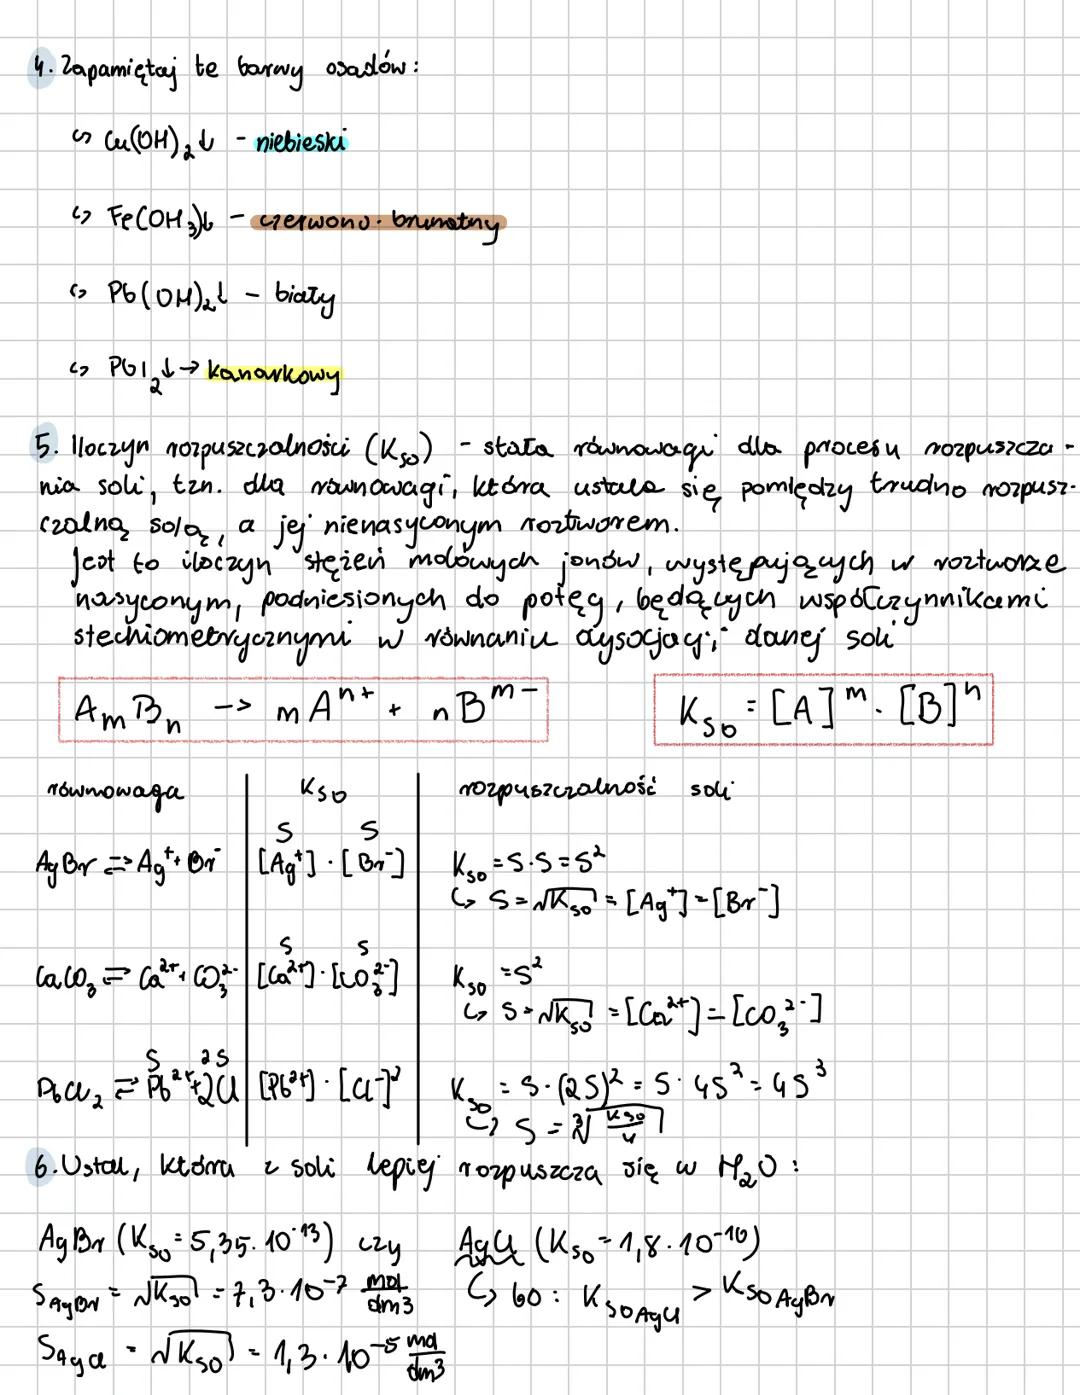 4. Zapamiętaj te barwy osadów:
↳ Cu(OH)₂↓ - niebieski
↳ Fe(OH₃)↓ - czerwono-brunatny
↳ Pb(OH)₂↓ - biały
↳ PbI₂↓ → kanarkowy
5. Iloczyn rozpuszczalności (Kso) - stała równowagi dla procesu rozpuszcza-
nia soli, tzn. dla równowagi, która ustala się pomiędzy trudno rozpusz-
czalną solą, a jej nienasyconym roztworem.
Jest to iloczyn stężeń molowych jonów, występujących w roztworze
nasyconym, podniesionych do potęg, będących współczynnikami
stechiometrycznymi w równaniu dysocjacji danej soli
AmBn -> mAⁿ⁺ + nBᵐ⁻ Kso = [A]ᵐ · [B]ⁿ
równowaga Kso rozpuszczalność soli
S S
AgBr ⇌ Ag⁺ + Br⁻ [Ag⁺] · [Br⁻] Kso = S·S = S²
↳ S = √Kso = [Ag⁺] = [Br⁻]
S S
CaCO₃ ⇌ Ca²⁺ + CO₃²⁻ [Ca²⁺] · [CO₃²⁻] Kso = S²
↳ S = √Kso = [Ca²⁺] = [CO₃²⁻]
S 2S
PbCl₂ ⇌ Pb²⁺ + 2Cl [Pb²⁺] · [Cl⁻]² Kso = S·(2S)² = S·4S² = 4S³
↳ S = ∛(Kso/4)
6. Ustal, która z soli lepiej rozpuszcza się w H₂O:
AgBr (Kso = 5,35·10⁻¹³) czy AgCl (Kso = 1,8·10⁻¹⁰)
S AgBr = √Kso = 7,3·10⁻⁷ mol/dm3 ↳ bo: Kso AgCl > Kso AgBr
S AgCl = √Kso = 1,3·10⁻⁵ mol/dm³